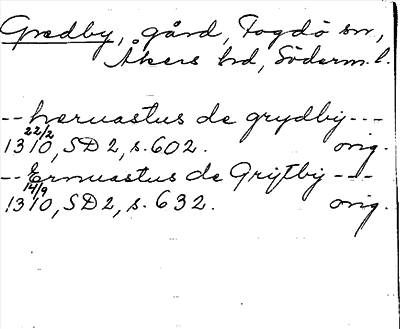 Grædby, gård, Fogdö sn,
Åkers hd, Söderm. l.
-- hæruastus de grydby ---
1310 22/2, SD 2, s. 602. orig.
-- Ermuastus de Grijtby ---
1310 14/9, SD 2, s. 632. orig.